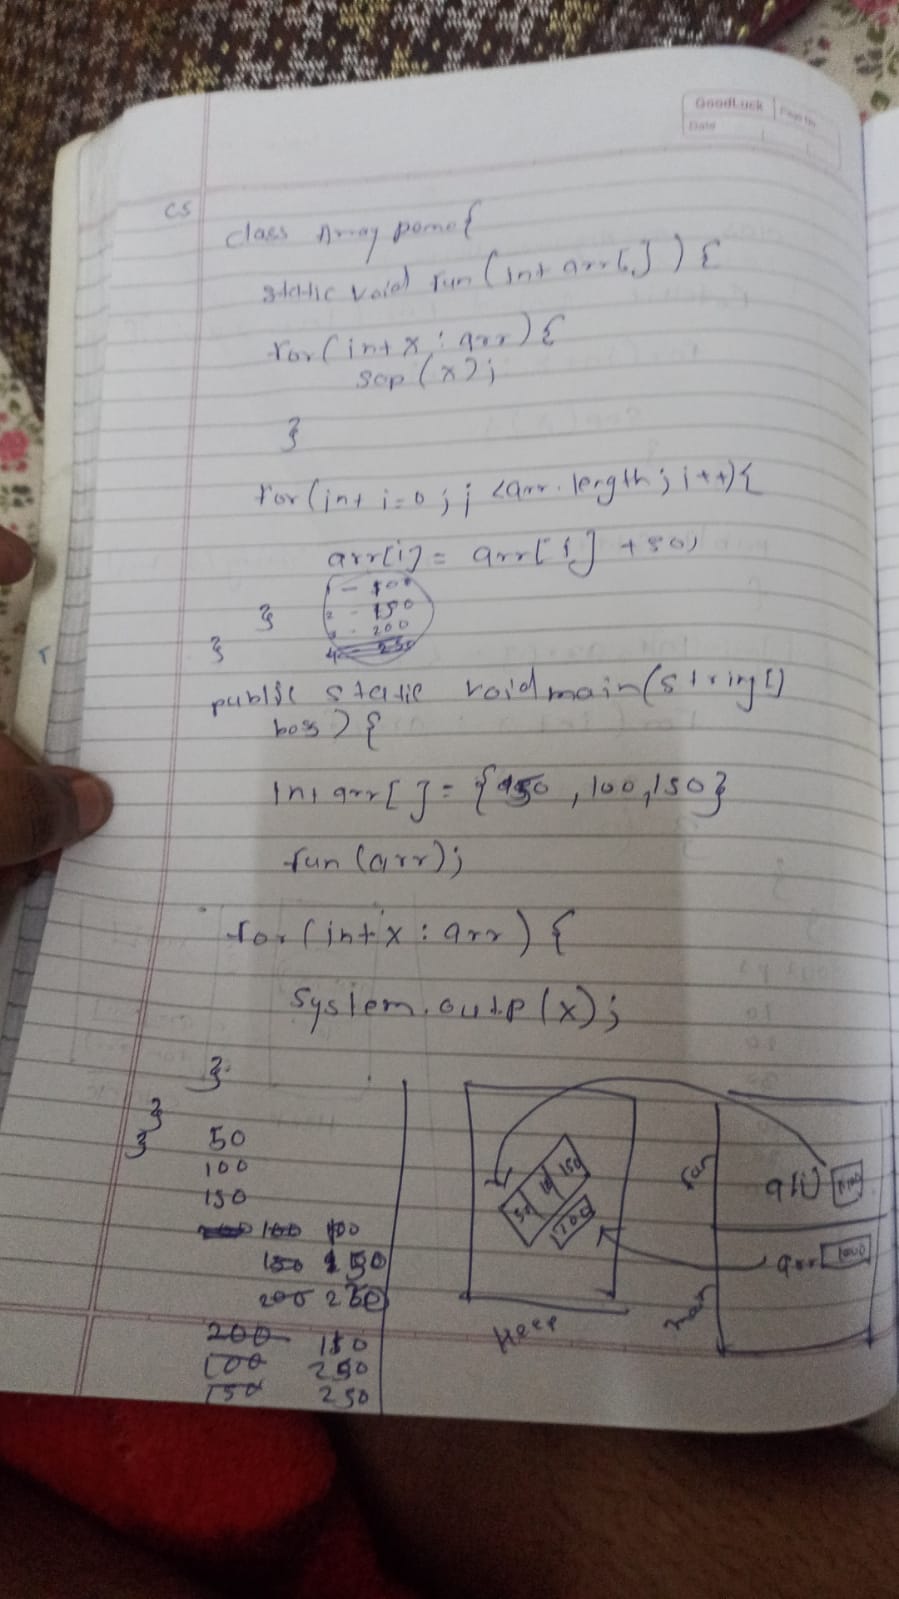 GoodLuck
Page No
Date
CS
class Array
static void fun (int arr[]) {
for (int x : arr) {
sop (x);
}
for (int i=0; i <arr.length; i++) {
arr[i] = arr[i] +50;
150
200
}
}
public static void main(string[]
boss) {
int arr[] = { 50, 100, 150}
fun (arr);
for (int x : arr) {
System.out.p (x);
}
}
}
50
100
150
100 100
150 150
200
200 150
100 250
150 250
50 150
200
Heap
fun
arr 1000
main